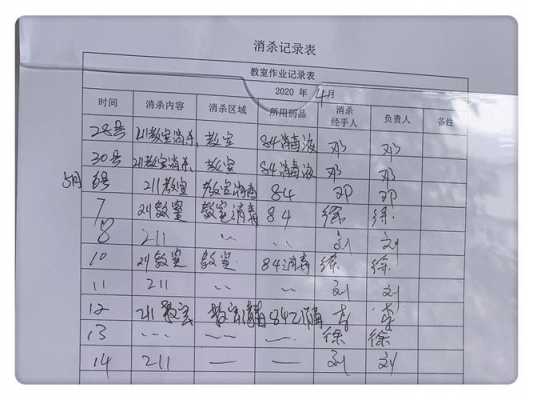 消杀记录表
教室作业记录表
2020 年 4月
时间 消杀内容 消杀区域 所用药品 消杀经手人 负责人 备注
28号 211教室消杀 教室 84消毒液 邓 邓
30号 211教室消杀 教室 84消毒液 邓 邓
5月 6号 211教室 教室消毒 84 邓 邓
7 211教室 教室消毒 84 徐 徐
8 211 〃 〃 刘 刘
10 211教室 教室 84消毒 徐 徐
11 211 〃 〃 刘 刘
12 211教室 教室 84消毒 李 李
13 〃 〃 〃 徐 徐
14 211 — — 刘 刘